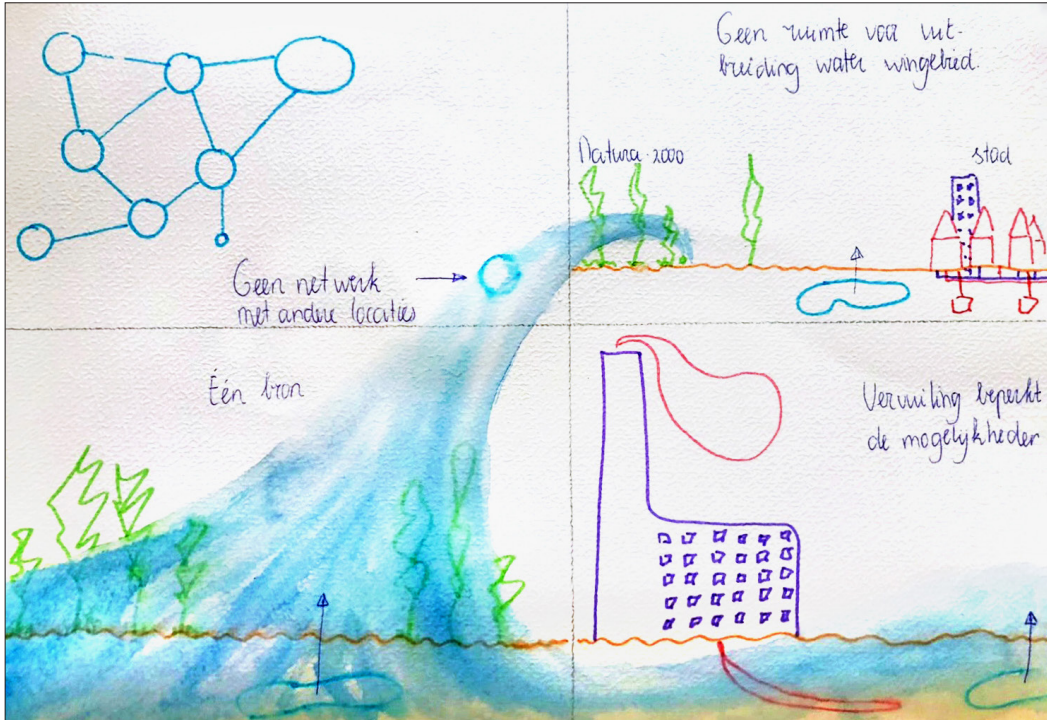 Geen ruimte voor uit-
breiding water wingebied.
Natura 2000
stad
Geen netwerk
met andere locaties
Één bron
Vervuiling beperkt
de mogelijkheden